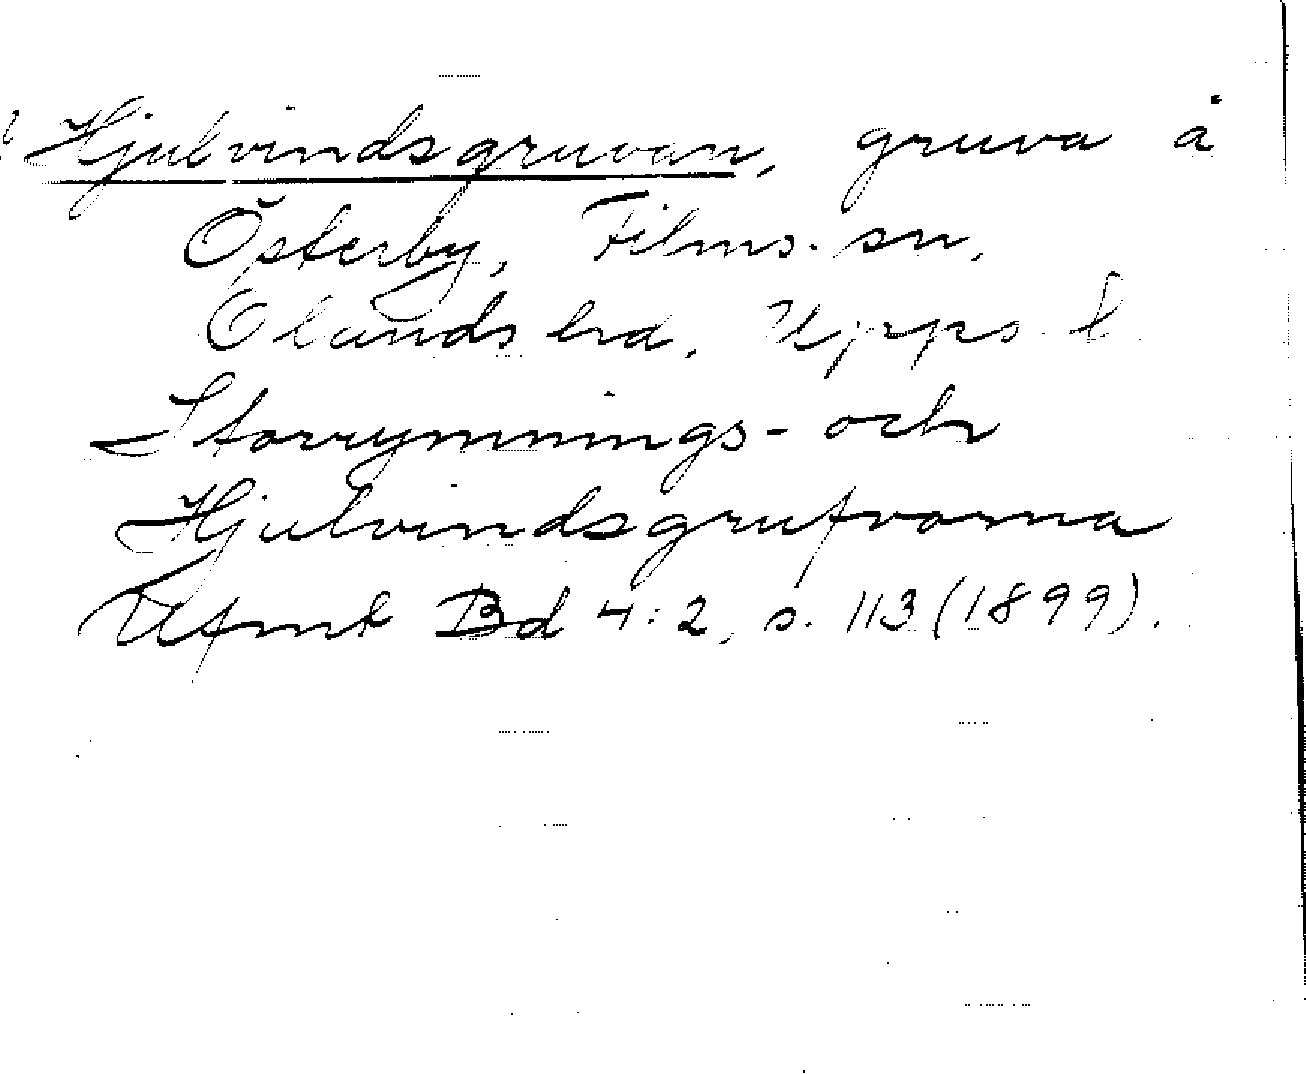 Hjulvindsgruvan, gruva å
Österby, Films sn,
Olands hd, Upps l
Storrymnings- och
Hjulvindsgrufvorna
Ufmt Bd 4:2, s. 113 (1899).